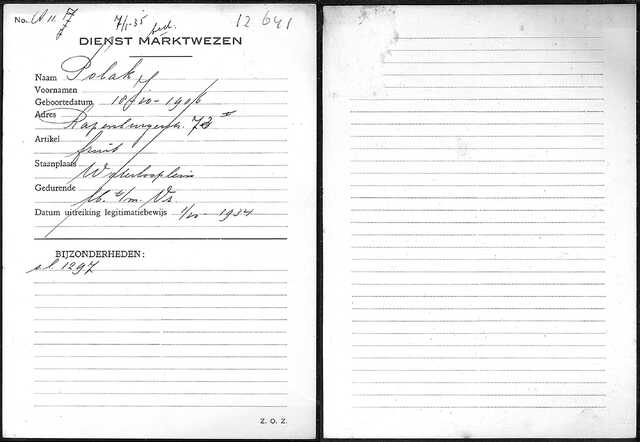 No. 7 7/1-35 12641
DIENST MARKTWEZEN
Naam Polak
Voornamen
Geboortedatum 18/10-1906
Adres Rapenburgerstr. 73 II
Artikel fruit
Staanplaats Waterlooplein
Gedurende t/m. Vr.
Datum uitreiking legitimatiebewijs 1/10-1934
BIJZONDERHEDEN:
s.l. 1297
Z. O. Z.